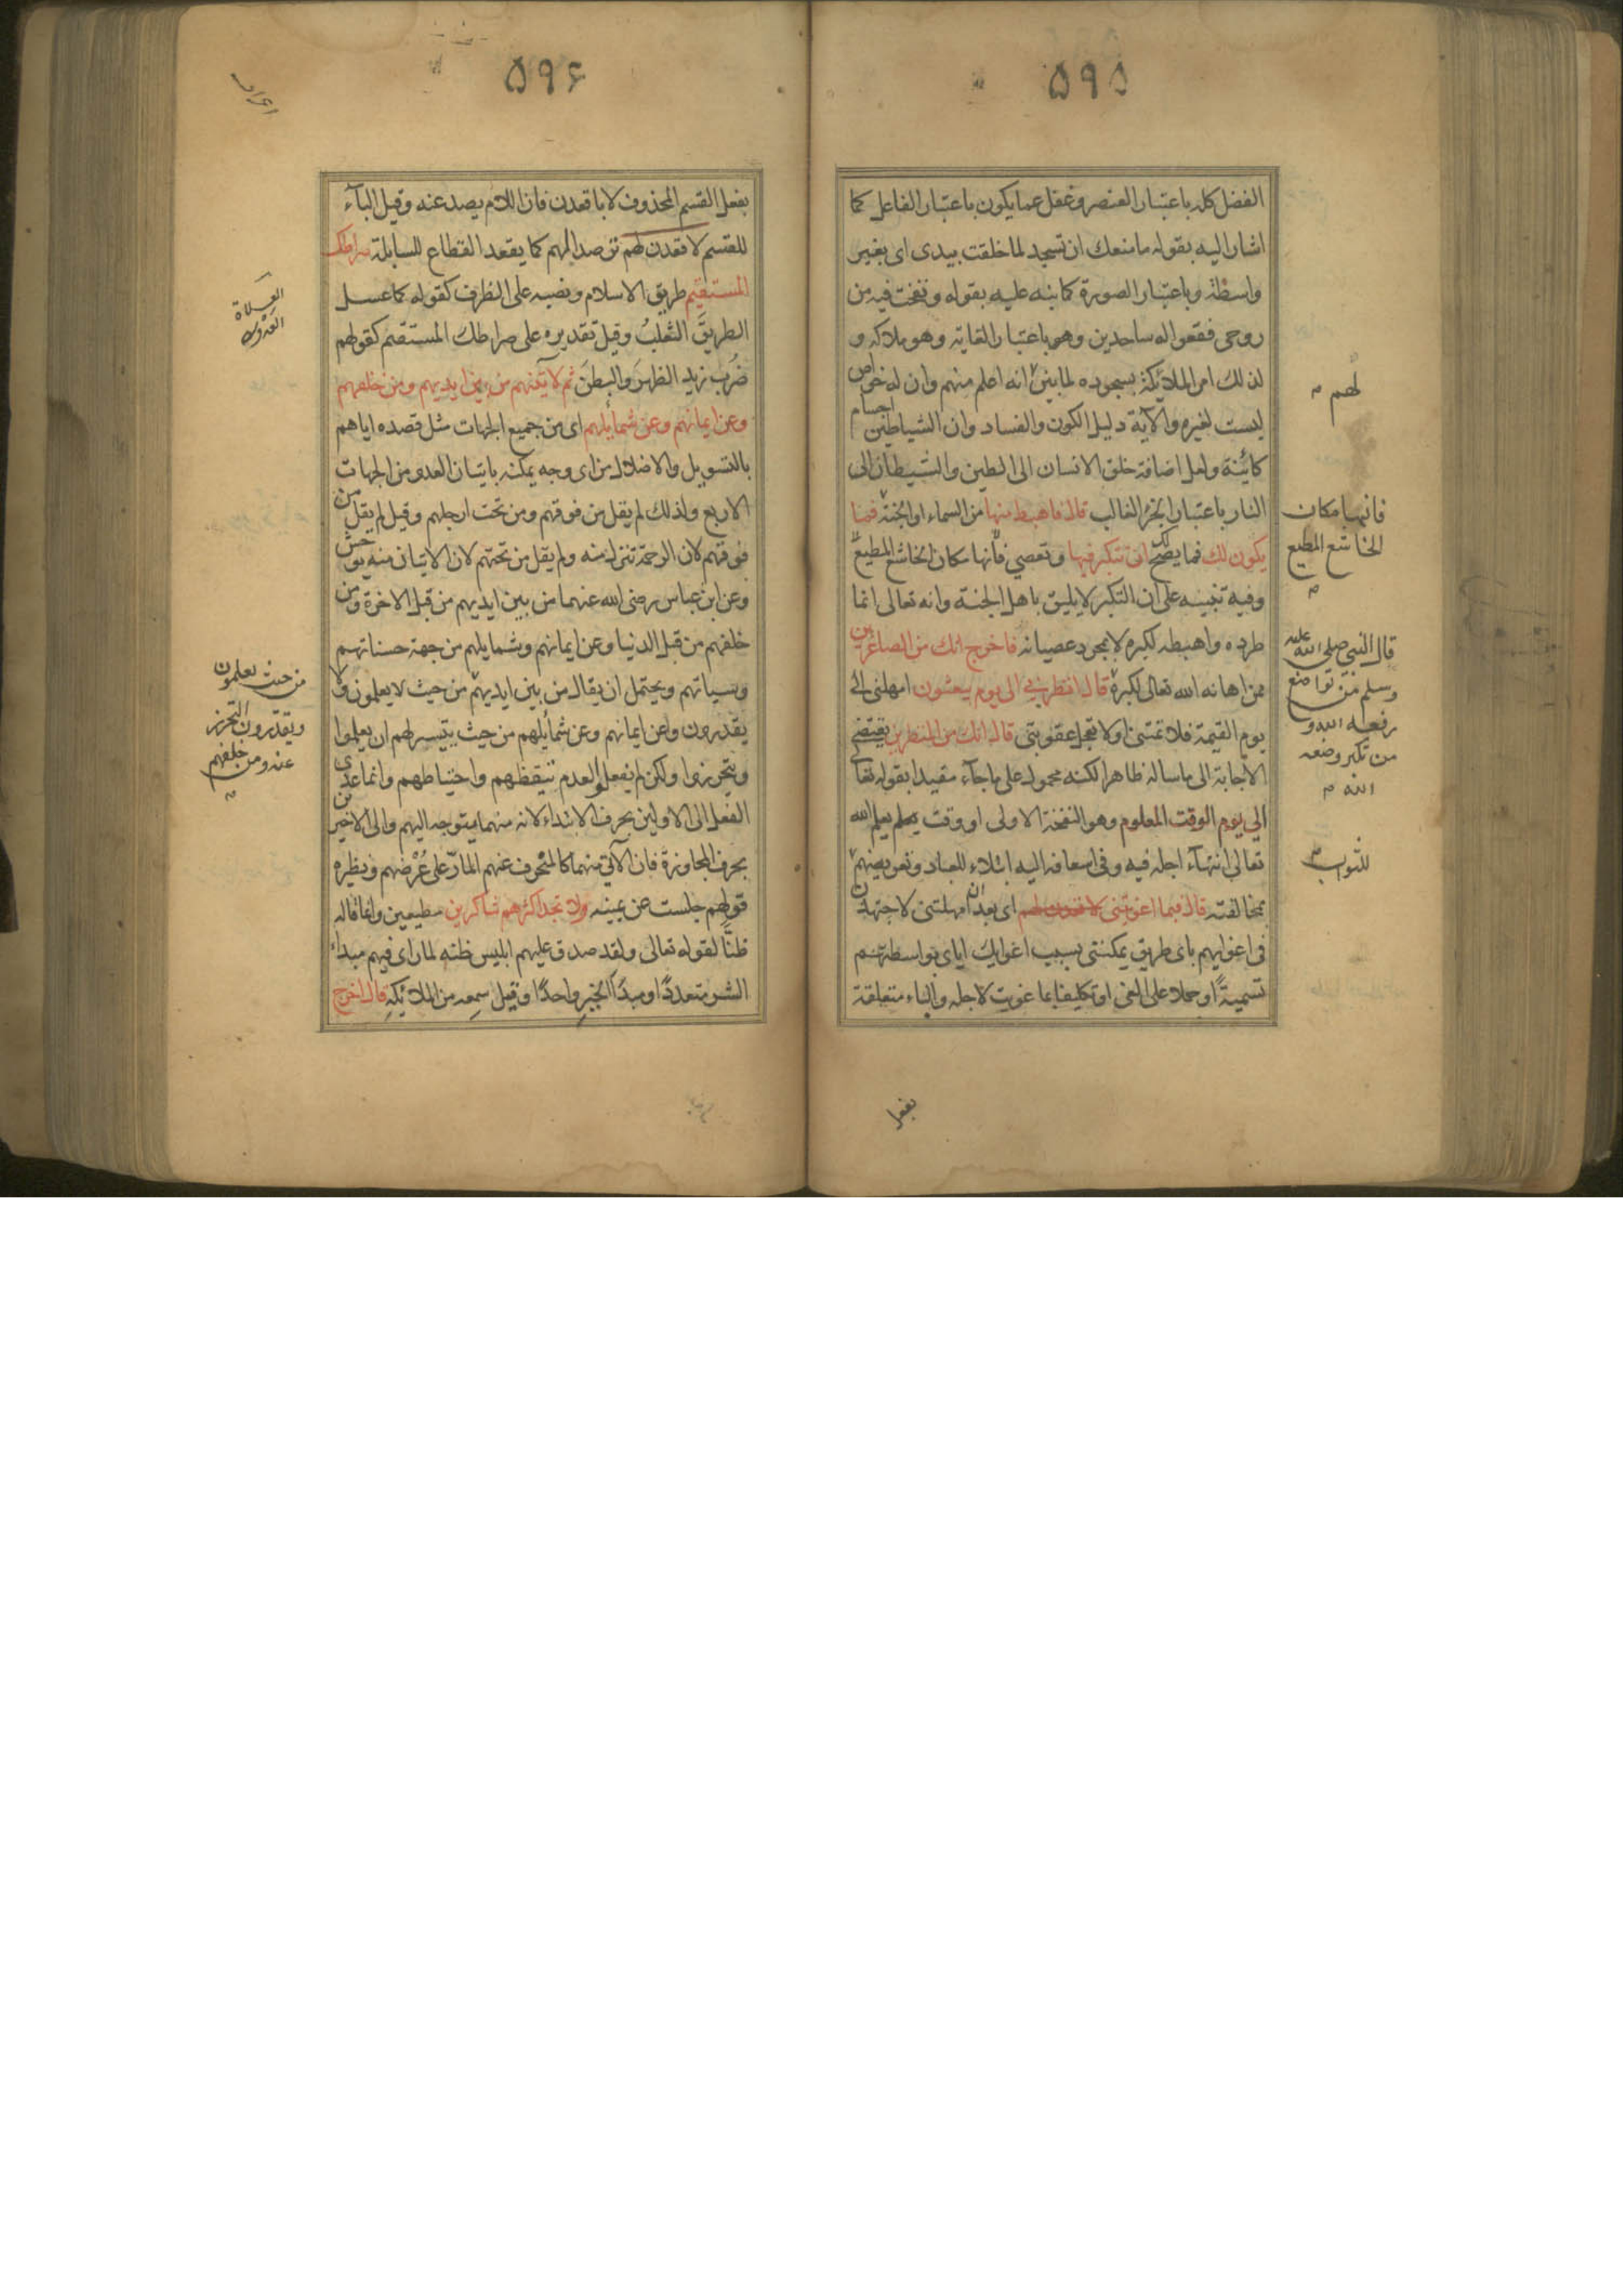 ۵۹۵
الفضل كله باعتبار العنصر وغفل عما يكون باعتبار الفاعل كما
اشار اليه بقوله ما منعك ان تسجد لما خلقت بيدى اى بغير
واسطة وباعتبار الصورة كما نبه عليه بقوله ونفخت فيه من
روحى فقعوا له ساجدين وهو باعتبار الغاية وهو ملاكه و
لذلك امر الملائكة بسجوده لما بين انه اعلم منهم وان له خواص
ليست لغيره والآية دليل الكون والفساد وان الشياطين اجسام
كائنة ولعل اضافة خلق الانسان الى الطين والشيطان الى
النار باعتبار الجزء الغالب قال فاهبط منها من السماء او الجنة فما
يكون لك فما يصح لك ان تتكبر فيها وتعصي فانها مكان الخاشع المطيع
وفيه تنبيه على ان التكبر لا يليق باهل الجنة وانه تعالى انما
طرده واهبطه لكبره لا بمجرد عصيانه فاخرج انك من الصاغرين
ممن اهانه الله تعالى لكبره قال انظرني الى يوم يبعثون امهلنى الى
يوم القيمة فلا تمتنى اولا تعجل عقوبتى قال انك من المنظرين يقتضي
الاجابة الى ما ساله ظاهرا لكنه محمول على ما جاء مقيدا بقوله تعا
الي يوم الوقت المعلوم وهو النفخة الاولى او وقت يعلم الله
تعالى انتهاء اجله فيه وفى اسعافه اليه ابتلاء للعباد وتعريضهم
بمخالفته قال فبما اغويتنى لاقعدن لهم اى بعد ان امهلتنى لاجتهدن
فى اغوايهم باى طريق يمكننى بسبب اغوايك اياى بواسطتهم
تسمية او حملا على الغى او تكليفا بما غويت لاجله والباء متعلقة
بفعل
لهم
فانها مكان
الخاشع المطيع
قال النبى صلى الله عليه
وسلم من تواضع
رفعه الله و
من تكبر وضعه
الله
للثواب
۵۹۶
بفعل القسم المحذوف لا باقعدن فان اللام يصد عنه وقيل الباء
للقسم لاقعدن لهم ترصدا لهم كما يقعد القطاع للسابلة صراطك
المستقيم طريق الاسلام ونصبه على الظرف كقوله كما عسل
الطريق الثعلب وقيل تقديره على صراطك المستقيم كقولهم
ضرب زيد الظهر والبطن ثم لآتينهم من بين ايديهم ومن خلفهم
وعن ايمانهم وعن شمائلهم اى من جميع الجهات مثل قصده اياهم
بالتسويل والاضلال من اى وجه يمكنه باتيان العدو من الجهات
الاربع ولذلك لم يقل من فوقهم ومن تحت ارجلهم وقيل لم يقل من
فوقهم لان الرحمة تنزل منه ولم يقل من تحتهم لان الاتيان منه يوحش
وعن ابن عباس رضى الله عنهما من بين ايديهم من قبل الاخرة ومن
خلفهم من قبل الدنيا وعن ايمانهم وشمايلهم من جهة حسناتهم
وسياتهم ويحتمل ان يقال من بين ايديهم من حيث لا يعلمون ولا
يقدرون وعن ايمانهم وعن شمائلهم من حيث يتيسر لهم ان يعلموا
ويتحرزوا ولكن لم يفعلوا لعدم تيقظهم واحتياطهم وانما عدى
الفعل الى الاولين بحرف الابتداء لانه منهما متوجه اليهم والى الاخيرين
بحرف المجاوزة فان الآتى منهما كالمنحرف عنهم المارّ على عُرْضهم ونظيره
قولهم جلست عن يمينه ولا تجد اكثرهم شاكرين مطيعين وانما قاله
ظنًّا لقوله تعالى ولقد صدق عليهم ابليس ظنه لما راى فيهم مبداء
الشر متعددًا ومبدأ الخير واحدًا وقيل سمعه من الملائكة قال اخرج
من حيث يعلمون
ويقدرون التحرز
عنه ومن خلفهم